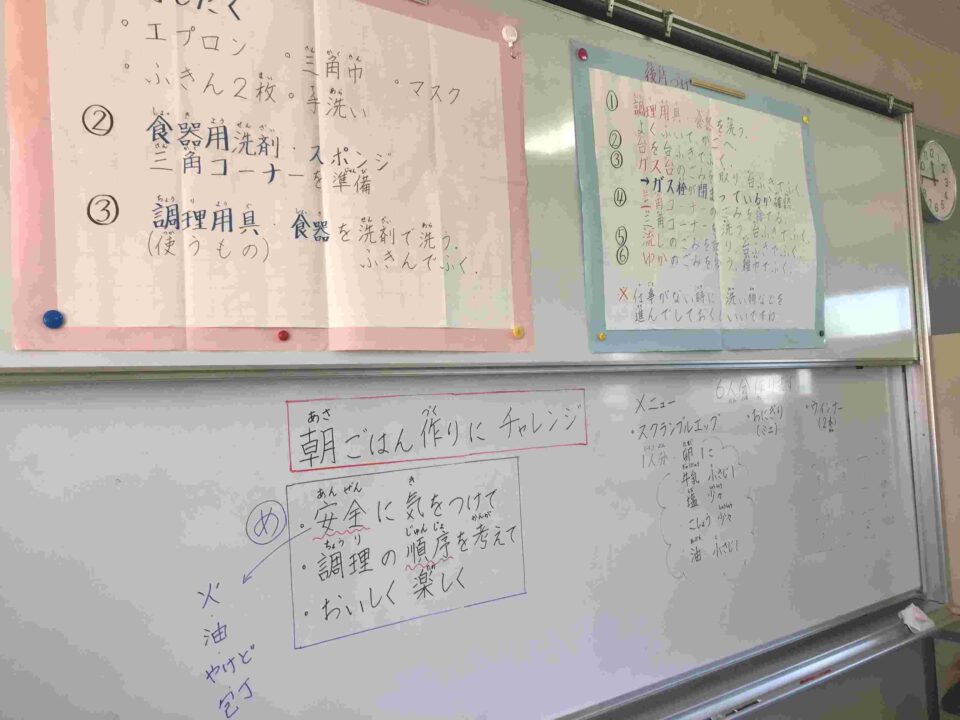 したく
。エプロン 。三角巾
。ふきん2枚 。手洗い 。マスク
② 食器用洗剤・スポンジ
三角コーナーを準備
③ 調理用具・食器を洗剤で洗う.
(使うもの) ふきんでふく.
後片づけ
① 調理用具・食器を洗う.
よくふいてかごへ.
② 台を台ふきでふく.
③ ガス台のごみ取り、台ふきでふく.
→ガス栓が閉まっているか確認
④ 三角コーナーのごみを捨てる.
三角コーナーを洗う.
⑤ 流しのごみを取り、台ふきでふく.
⑥ ゆかのごみを拾う.
※ 仕事がない時に、洗い物などを
進んでしておくといいですね
朝ごはん作りにチャレンジ
め
・安全に気をつけて
・調理の順序を考えて
・おいしく楽しく
火
・油
・やけど
包丁
6人分
メニュー
・スクランブルエッグ ・おにぎり(ミニ) ・ウインナー(2本)
1人分 卵 1こ
牛乳 小さじ1
塩 少々
こしょう 少々
油 小さじ1